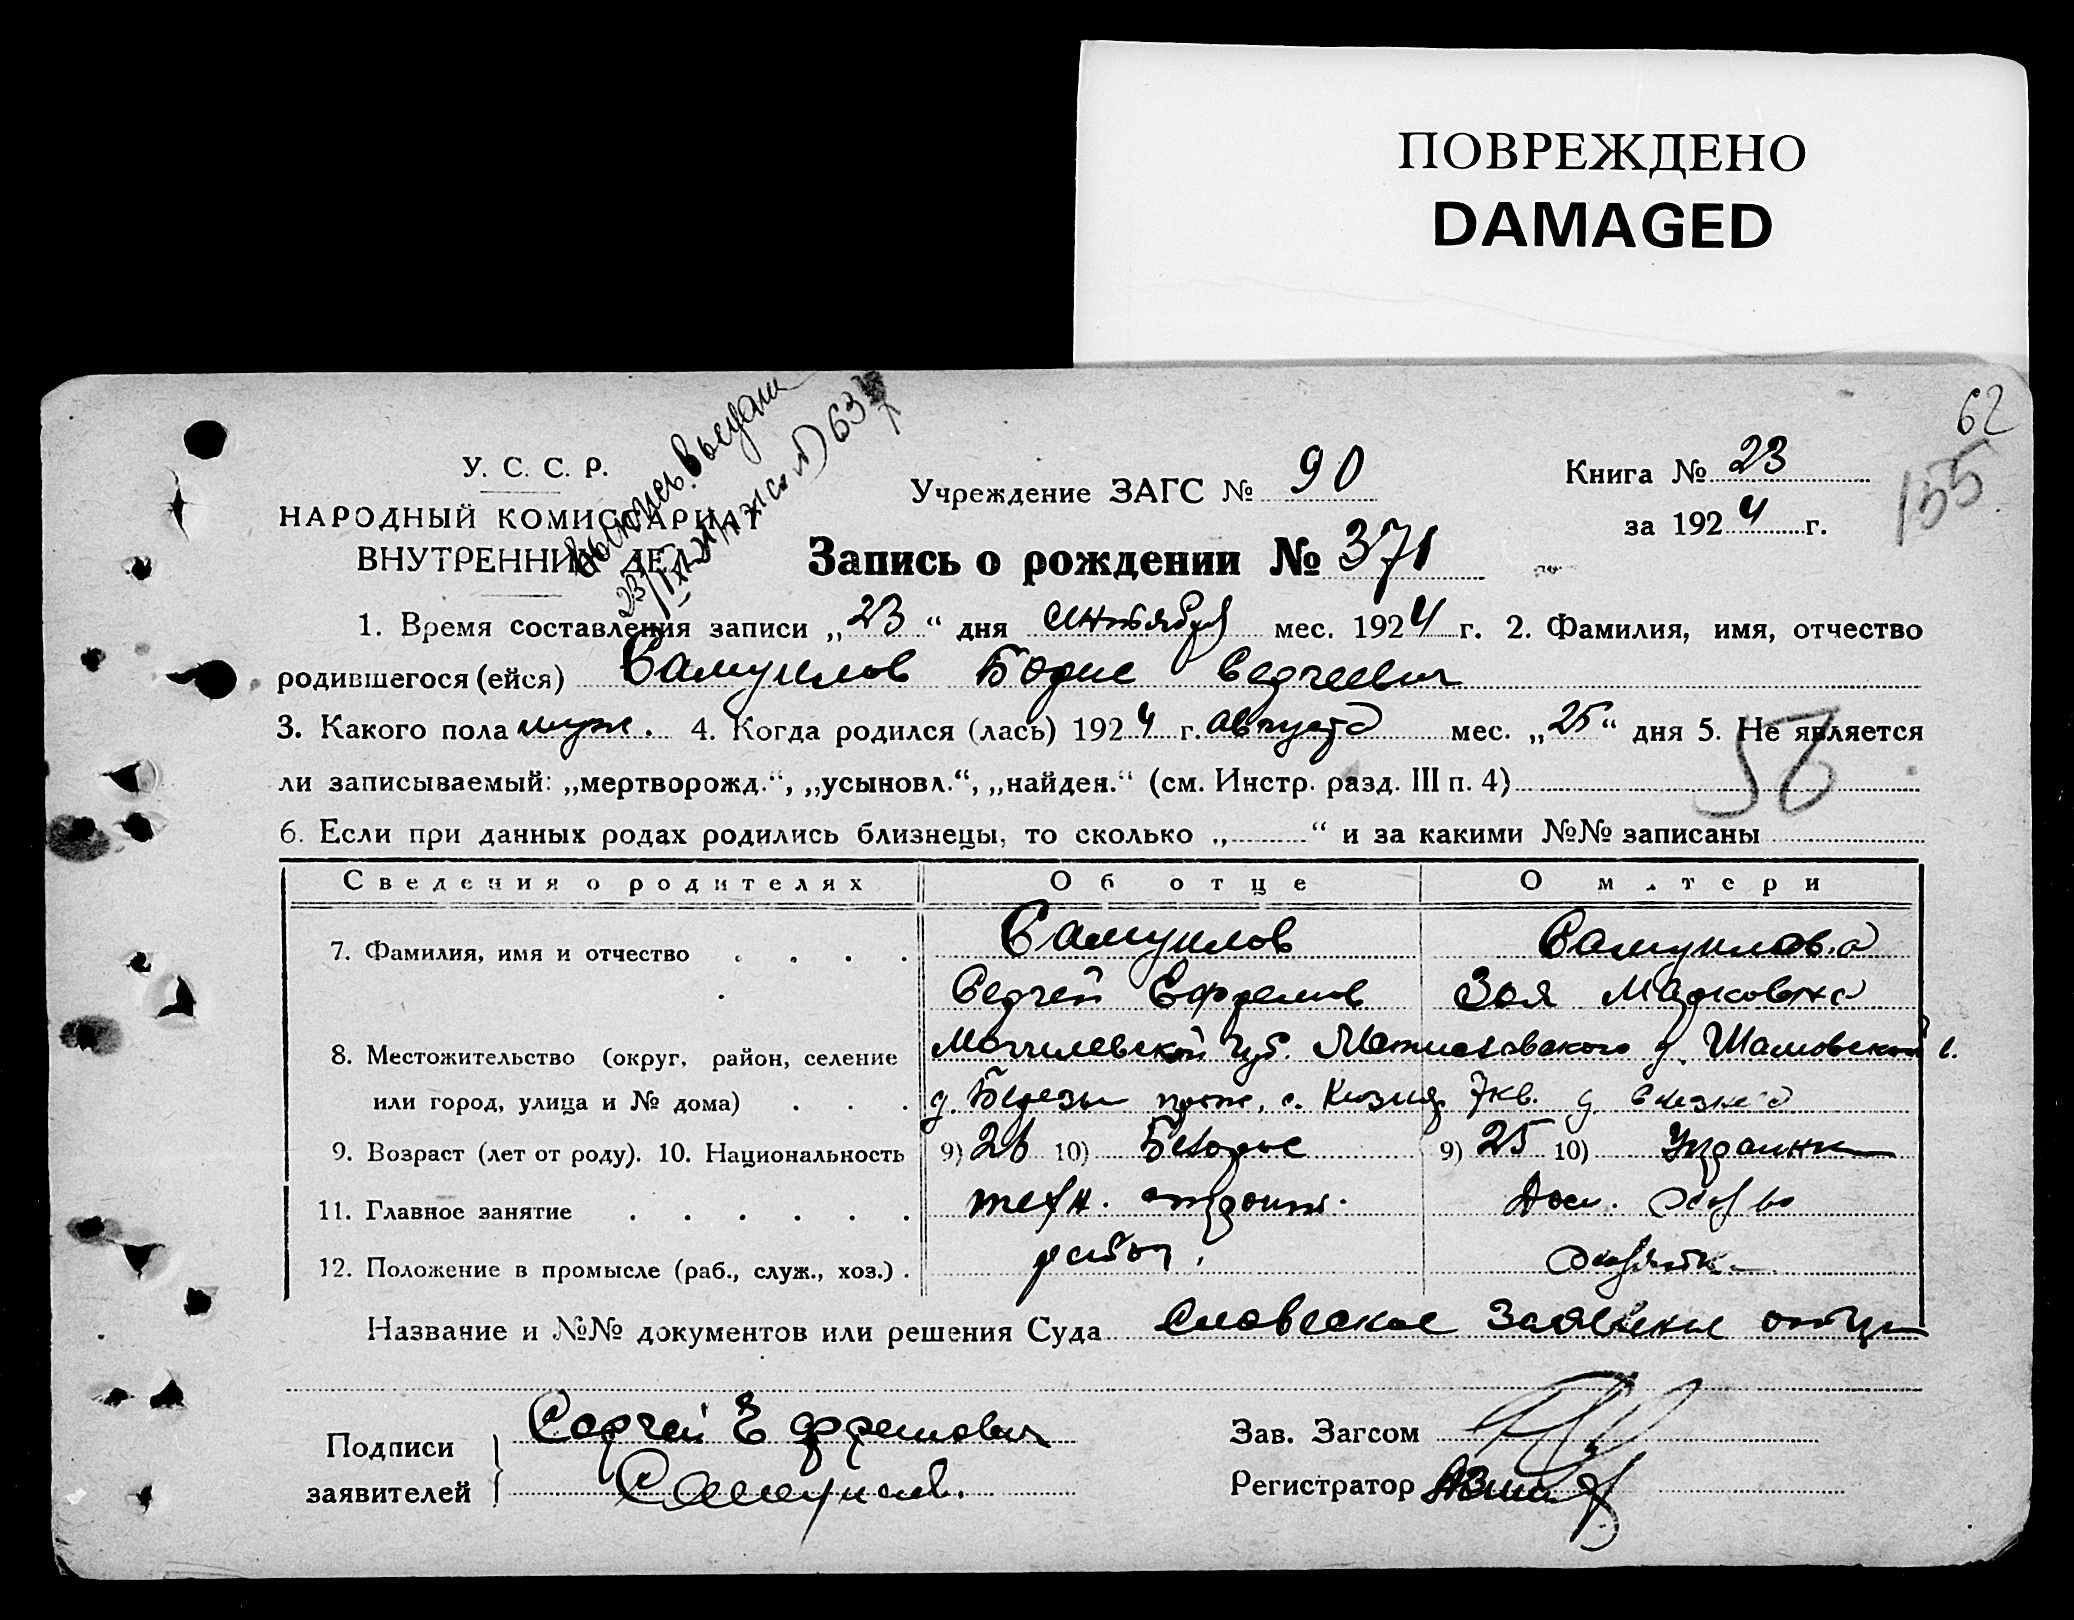 ПОВРЕЖДЕНО
DAMAGED
62
155
У. С. С. Р.
НАРОДНЫЙ КОМИССАРИАТ
ВНУТРЕННИХ ДЕЛ
Учреждение ЗАГС № 90
Книга № 23
за 1924 г.
Запись о рождении № 371
1. Время составления записи „23“ дня сентября мес. 1924 г. 2. Фамилия, имя, отчество
родившегося (ейся) Самуилов Борис Сергеевич
3. Какого пола муж. 4. Когда родился (лась) 1924 г. августа мес. „25“ дня 5. Не является
ли записываемый: „мертворожд.“, „усыновл.“, „найден.“ (см. Инстр. разд. III п. 4)
56
6. Если при данных родах родились близнецы, то сколько „ “ и за какими №№ записаны
Сведения о родителях Об отце О матери
7. Фамилия, имя и отчество . . . . Самуилов Самуилова
Сергей Ефремов Зоя Марковна
8. Местожительство (округ, район, селение Могилевской губ. Мстиславского у. Шамовской
или город, улица и № дома) . . . д. Березы прож. с.
9. Возраст (лет от роду). 10. Национальность 9) 26 10) Белорус 9) 25 10) Украинка
11. Главное занятие . . . . . . техн. строит. Дом. хоз-во
12. Положение в промысле (раб., служ., хоз.) . работ. хозяйка
Название и №№ документов или решения Суда Словесное заявление отца
Подписи
заявителей
Сергей Ефремович
Самуилов.
Зав. Загсом
Регистратор